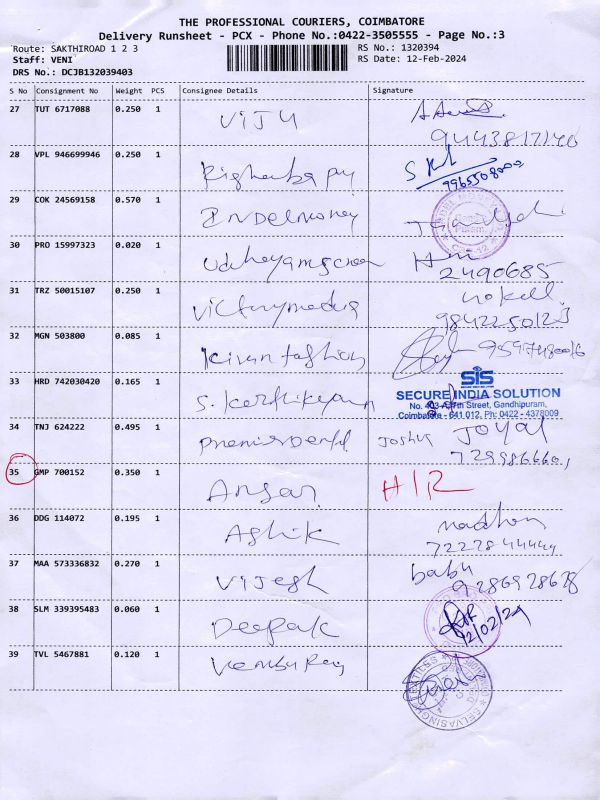 THE PROFESSIONAL COURIERS, COIMBATORE
Delivery Runsheet - PCX - Phone No.:0422-3505555 - Page No.:3
Route: SAKTHIROAD 1 2 3
RS No.: 1320394
Staff: VENI
RS Date: 12-Feb-2024
DRS No.: DCJB132039403
S No Consignment No Weight PCS Consignee Details Signature
27 TUT 6717088 0.250 1 VIJU
9443817140
28 VPL 946699946 0.250 1
9965508000
29 COK 24569158 0.570 1 Indelmoney
30 PRO 15997323 0.020 1
2490685
31 TRZ 50015107 0.250 1 Victorymedia
9842250123
32 MGN 503800 0.085 1 kiran fashion
33 HRD 742030420 0.165 1 S. Karthikeyan
SIS
SECURE INDIA SOLUTION
No. 403-A, 7th Street, Gandhipuram,
Coimbatore - 641 012. Ph: 0422 - 4378009
34 TNJ 624222 0.495 1 Joshua Joyal
35 GMP 700152 0.350 1 Ansari H/R
36 DDG 114072 0.195 1 Ashik
37 MAA 573336832 0.270 1 Vijesh babu
9286928628
38 SLM 339395483 0.060 1 Deepak
12/02/24
39 TVL 5467881 0.120 1